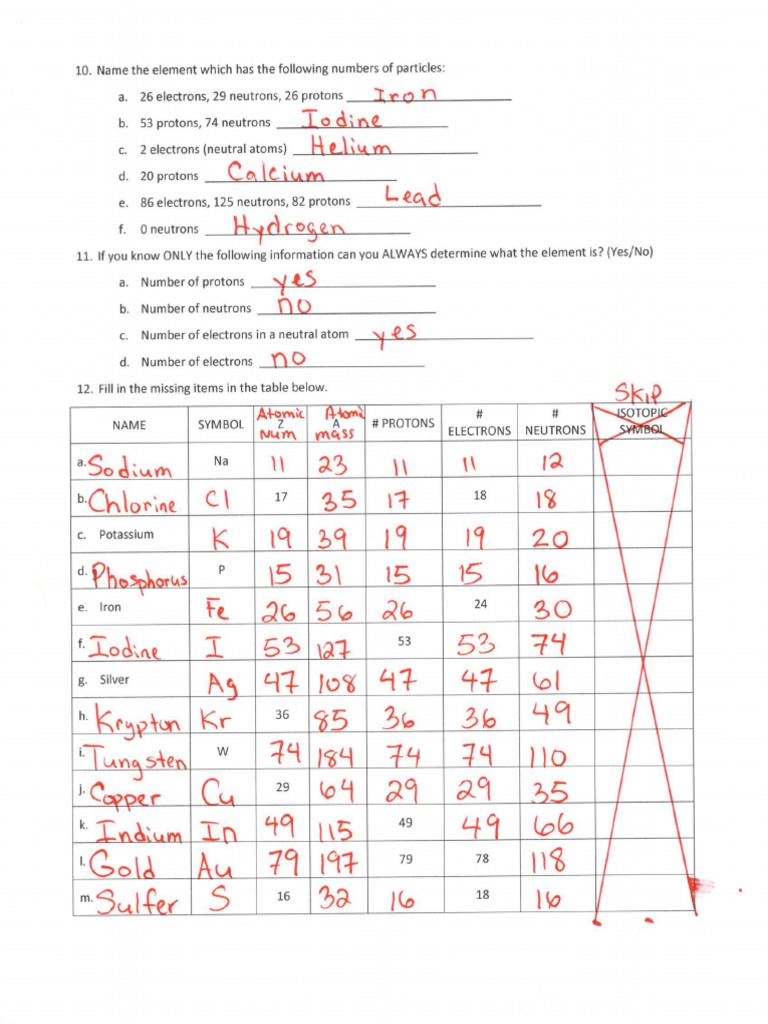 10. Name the element which has the following numbers of particles:
a. 26 electrons, 29 neutrons, 26 protons Iron
b. 53 protons, 74 neutrons Iodine
c. 2 electrons (neutral atoms) Helium
d. 20 protons Calcium
e. 86 electrons, 125 neutrons, 82 protons Lead
f. 0 neutrons Hydrogen
11. If you know ONLY the following information can you ALWAYS determine what the element is? (Yes/No)
a. Number of protons yes
b. Number of neutrons no
c. Number of electrons in a neutral atom yes
d. Number of electrons no
12. Fill in the missing items in the table below.
Skip
NAME SYMBOL Atomic Z Num Atomi A mass # PROTONS # ELECTRONS # NEUTRONS ISOTOPIC SYMBOL
a. Sodium Na 11 23 11 11 12
b. Chlorine Cl 17 35 17 18 18
c. Potassium K 19 39 19 19 20
d. Phosphorus P 15 31 15 15 16
e. Iron Fe 26 56 26 24 30
f. Iodine I 53 127 53 53 74
g. Silver Ag 47 108 47 47 61
h. Krypton Kr 36 85 36 36 49
i. Tungsten W 74 184 74 74 110
j. Copper Cu 29 64 29 29 35
k. Indium In 49 115 49 49 66
l. Gold Au 79 197 79 78 118
m. Sulfer S 16 32 16 18 16